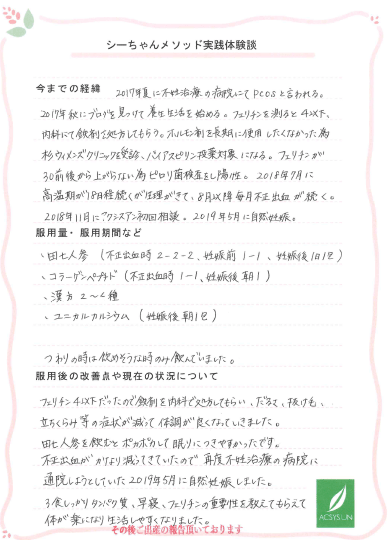 シーちゃんメソッド実践体験談
今までの経緯
2017年夏に不妊治療の病院にてPCOSと言われる。
2017年秋にブログを見つけて養生生活を始める。フェリチンを測ると4以下、
内科にて鉄剤で処方してもらう。ホルモン剤を長期に使用したくなかった為
杉ウィメンズクリニックを受診、バイアスピリン投薬対象になる。フェリチンが
30前後から上がらない為ピロリ菌検査をし陽性。2018年7月に
高温期が18日程続くが生理がきて、8月以降毎月不正出血が続く。
2018年11月にアクシスアン初回相談。2019年5月に自然妊娠。
服用量・服用期間など
、田七人参（不正出血時2-2-2、妊娠前1-1、妊娠後1日1包）
、コラーゲンペプチド（不正出血時1-1、妊娠後朝1）
、漢方2〜4種
、ユニカルカルシウム（妊娠後朝1包）
つわりの時は飲めそうな時のみ飲んでいました。
服用後の改善点や現在の状況について
フェリチン4以下だったので鉄剤を内科で処方してもらい、だるさ、抜け毛、
立ちくらみ等の症状が減って体調が良くなっていきました。
田七人参を飲むとポカポカして眠りにつきやすかったです。
不正出血がかなり減ってきていたので再度不妊治療の病院に
通院しようとしていた2019年5月に自然妊娠しました。
3食しっかりタンパク質、早寝、フェリチンの重要性を教えてもらえて
体が楽になり生活しやすくなりました。
その後ご出産の報告頂いております
ACSYSUN